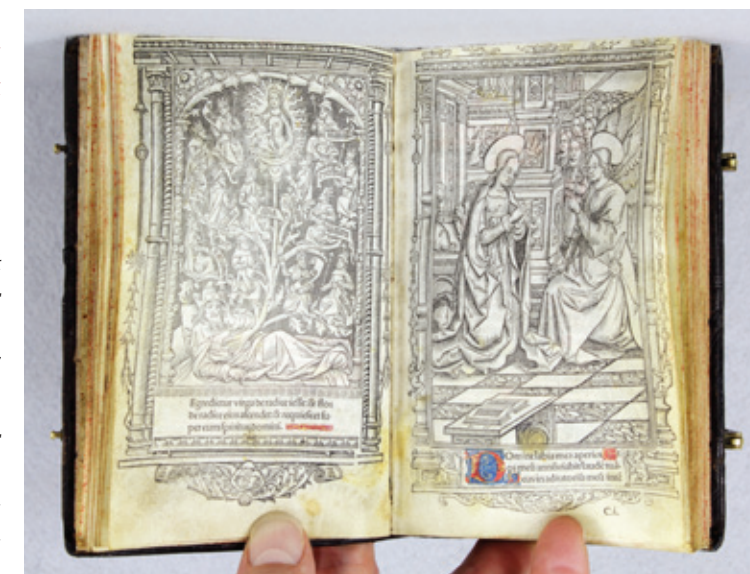 Egredietur virga de radice iesse & flos
de radice eius ascendet & requiescet su
per eum spiritus domini.
Domine labia mea aperies
Et os meum annūciabit laudē tuā
eus in adiutoriū meū intē
C.i.